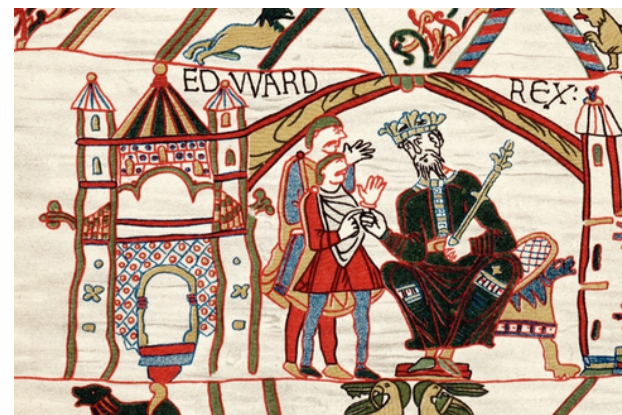 EDWARD REX: